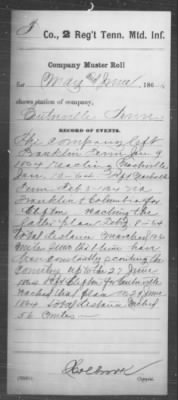 I
Co., 2 Reg't Tenn. Mtd. Inf.
Company Muster Roll
for May & June, 186
shows station of company,
Centerville Tenn.
RECORD OF EVENTS.
The company left
Franklin Tenn Jan 9
1864 reaching Nashville
Jan 10-64. Left Nashville
Tenn Feb 1-64 via
Franklin & Columbia for
Clifton reaching the
latter place Feby 8-64
total distance marched
miles since that time have
been constantly scouting the
country up to the 27 June
1864 left Clifton for Centerville
reached that place 29 June
1864 total distance marched
56 miles
Holbrook
Copyist.